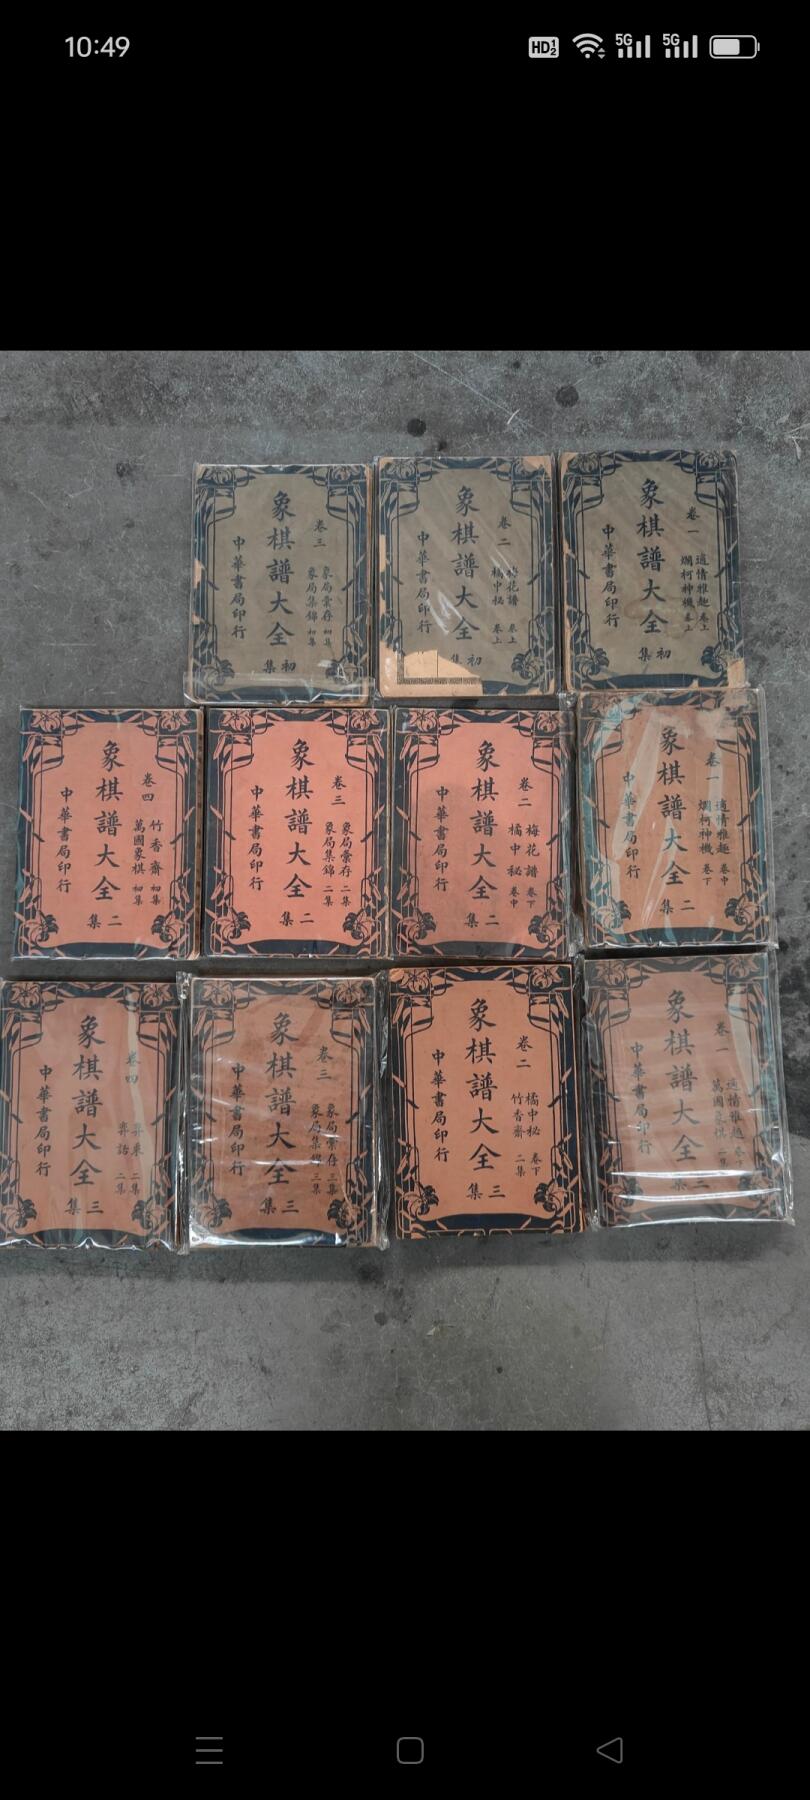 10:49
HD 1 2
5G
5G
卷一
適情雅趣 卷上
爛柯神機 卷上
象棋譜大全
初集
中華書局印行
卷二
梅花譜 卷上
橘中秘 卷上
象棋譜大全
初集
中華書局印行
卷三
象局彙存 初集
象局集錦 初集
象棋譜大全
初集
中華書局印行
卷一
適情雅趣 卷中
爛柯神機 卷下
象棋譜大全
二集
中華書局印行
卷二
梅花譜 卷下
橘中秘 卷中
象棋譜大全
二集
中華書局印行
卷三
象局彙存 二集
象局集錦 二集
象棋譜大全
二集
中華書局印行
卷四
竹香齋 初集
萬國象棋 初集
象棋譜大全
二集
中華書局印行
卷一
適情雅趣
萬國象棋
象棋譜大全
三集
中華書局印行
卷二
橘中秘 卷下
竹香齋 二集
象棋譜大全
三集
中華書局印行
卷三
象局彙存 三集
象局集錦 三集
象棋譜大全
三集
中華書局印行
卷四
弈乘 二集
弈話 二集
象棋譜大全
三集
中華書局印行